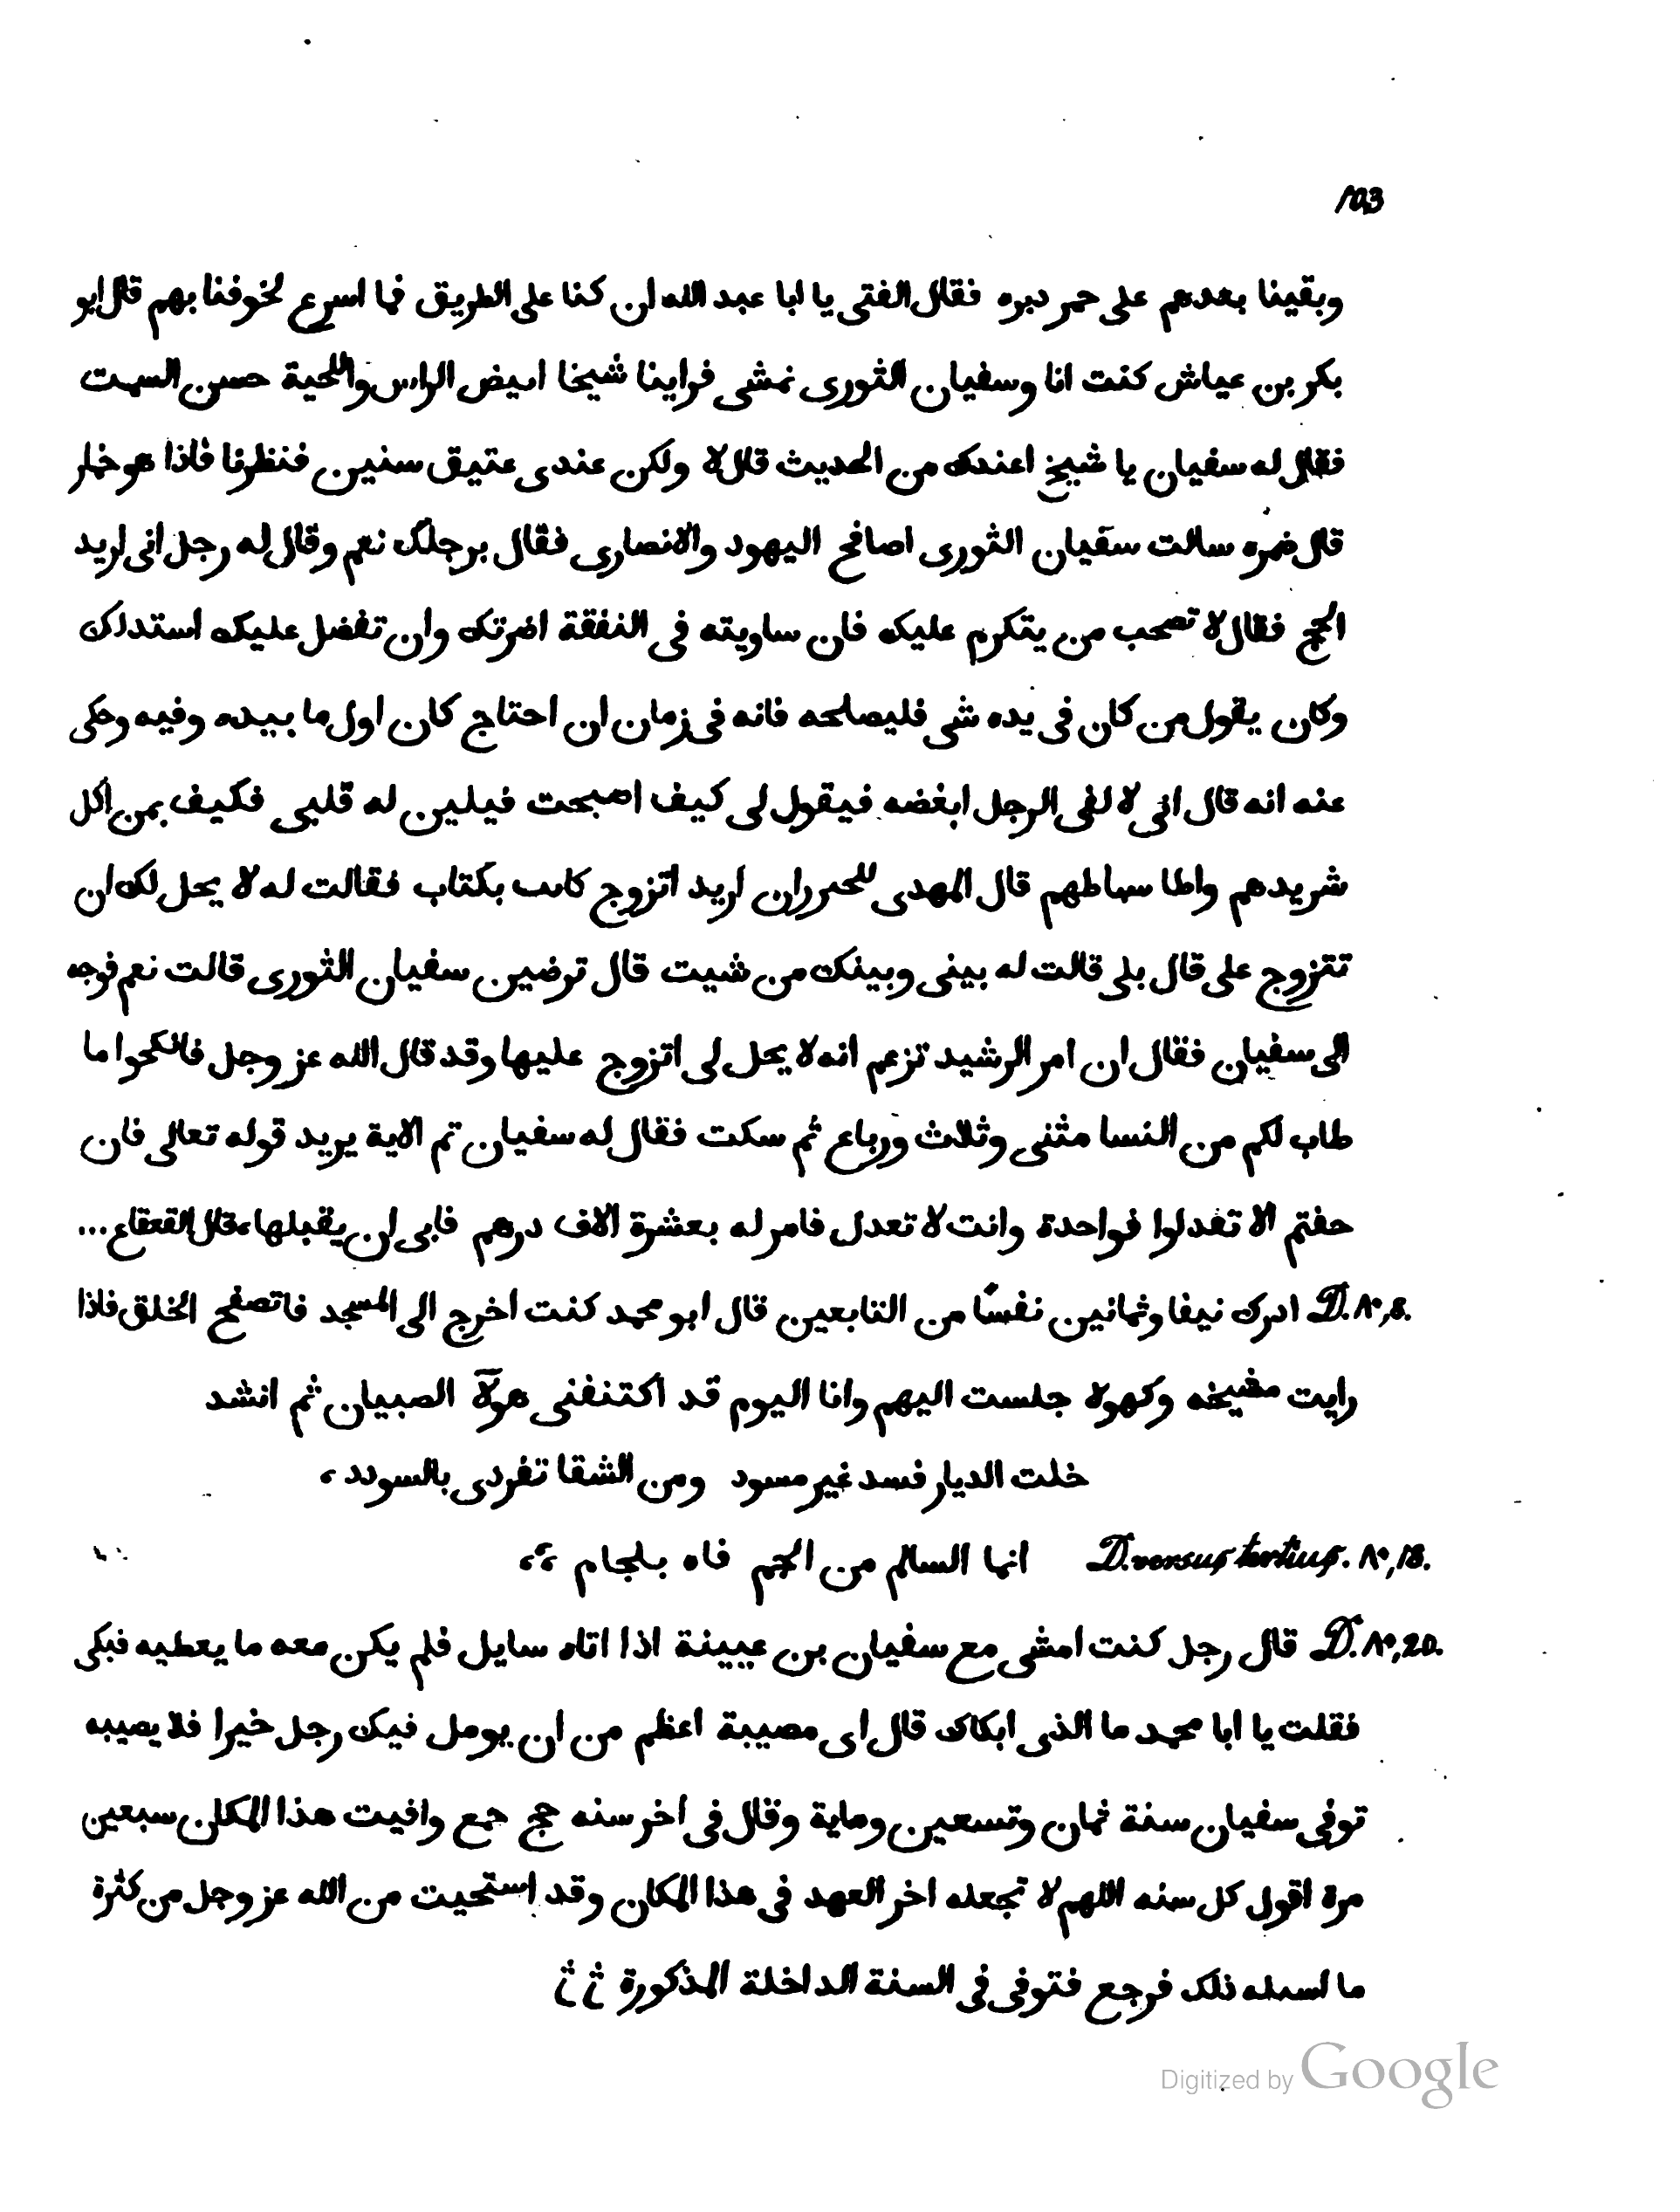 103
وبقينا بعدهم على حمر دبره فقال الفتى يا ابا عبد الله ان كنا على الطريق فما اسرع لخوفنا بهم قال ابو
بكر بن عياش كنت انا وسفيان الثورى نمشى فراينا شيخا ابيض الراس واللحية حسن السمت
فقال له سفيان يا شيخ اعندك من الحديث قال لا ولكن عندى عتيق سنين فنظرنا فاذا هو خمار
قال ضمره سالت سفيان الثورى اصافح اليهود والانصارى فقال برجلك نعم وقال له رجل انى اريد
الحج فقال لا تصحب من يتكرم عليك فان ساويته فى النفقة اضرتك وان تفضل عليك استدلك
وكان يقول من كان فى يده شى فليصلحه فانه فى زمان ان احتاج كان اول ما بيده وفيه وحكى
عنه انه قال انى لا لفى الرجل ابغضه فيقول لى كيف اصبحت فيلين له قلبى فكيف بمن اكل
شريدهم واطا سماطهم قال المهدى اريد اتزوج بكتاب فقالت له لا يحل لك ان
تتزوج على قال بلى قالت له بينى وبينك من شيت قال ترضين سفيان الثورى قالت نعم فوجه
الى سفيان فقال ان امر الرشيد تزعم انه لا يحل لى اتزوج عليها وقد قال الله عز وجل فانكحوا ما
طاب لكم من النسا مثنى وثلاث ورباع ثم سكت فقال له سفيان تم الاية يريد قوله تعالى فان
حفتم الا تغدلوا فواحدة وانت لا تعدل فامر له بعشرة الاف درهم فابى ان يقبلها، قال القعقاع ...
D. N°, 8. ادرك نيفا وثمانين نفسًا من التابعين قال ابو محمد كنت اخرج الى المسجد فاتصفح الخلق فاذا
رايت مشيخه وكهولا جلست اليهم وانا اليوم قد اكتنفنى هولآ الصبيان ثم انشد
خلت الديار فسد غير مسود ومن الشقا تفردى بالسودد ،
D. versus tertius. N°, 18. انما السالم من الجم فاه بلجام ،،
D. N°, 20. قال رجل كنت امشى مع سفيان بن عيينة اذا اتاه سايل فلم يكن معه ما يعطيه فبكى
فقلت يا ابا محمد ما الذى ابكاك قال اى مصيبة اعظم من ان يومل فيك رجل خيرا فلا يصيبه
توفى سفيان سنة ثمان وتسعين وماية وقال فى اخر سنه حج جمع وافيت هذا المكان سبعين
مرة اقول كل سنه اللهم لا تجعله اخر العهد فى هذا المكان وقد استحيت من الله عز وجل من كثرة
ما ذلك فرجع فتوفى فى السنة الداخلة المذكورة
Digitized by Google